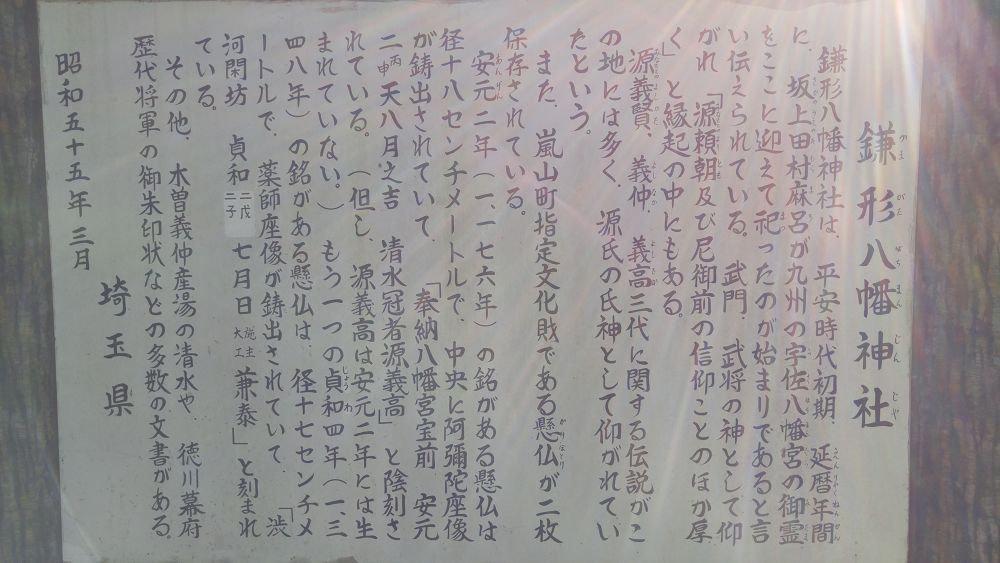 鎌形八幡神社
鎌形八幡神社は、平安時代初期、延暦年間
に、坂上田村麻呂が九州の宇佐八幡宮の御霊
をここに迎えて祀ったのが始まりであると言
い伝えられている。武門、武将の神として仰
がれ「源頼朝及び尼御前の信仰ことのほか厚
く」と縁起の中にもある。
源義賢、義仲、義高三代に関する伝説がこ
の地には多く、源氏の氏神として仰がれてい
たという。
また、嵐山町指定文化財である懸仏が二枚
保存されている。
安元二年(一、一七六年)の銘がある懸仏は
径十八センチメートルで、中央に阿彌陀座像
が鋳出されていて、「奉納八幡宮宝前 安元
二丙申天八月之吉 清水冠者源義高」と陰刻さ
れている。(但し、源義高は安元二年には生
まれていない。)もう一つの貞和四年(一、三
四八年)の銘がある懸仏は、径十七センチメ
ートルで、薬師座像が鋳出されていて、「渋
河閑坊 貞和二二戊子七月日施主大工兼泰」と刻まれ
ている。
その他、木曽義仲産湯の清水や、徳川幕府
歴代将軍の御朱印状などの多数の文書がある。
昭和五十五年三月
埼玉県